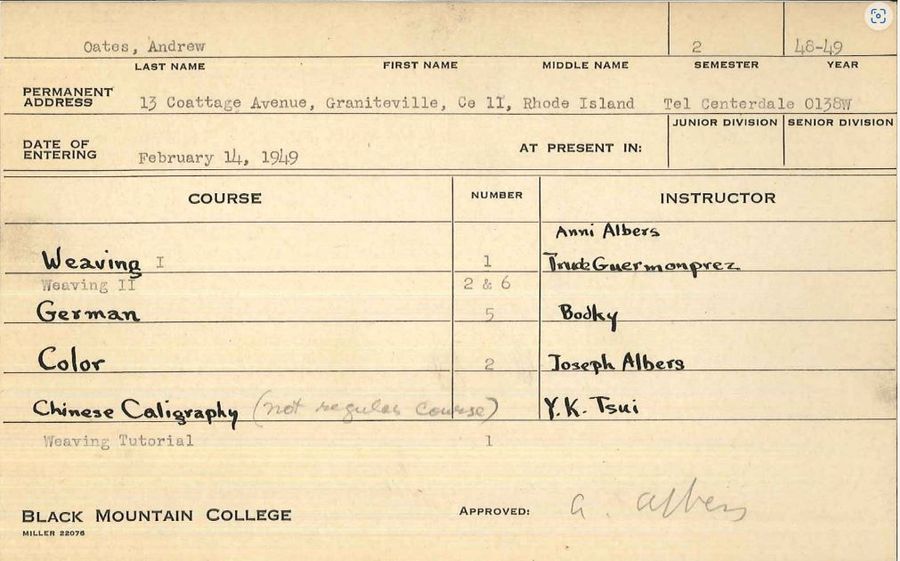 Oates, Andrew 2 48-49
LAST NAME FIRST NAME MIDDLE NAME SEMESTER YEAR
PERMANENT ADDRESS 13 Coattage Avenue, Graniteville, Ce 11, Rhode Island Tel Centerdale 0138W
JUNIOR DIVISION SENIOR DIVISION
DATE OF ENTERING February 14, 1949 AT PRESENT IN:
COURSE NUMBER INSTRUCTOR
Anni Albers
Weaving I 1 Trude Guermonprez
Weaving II 2 & 6
German 5 Bodky
Color 2 Joseph Albers
Chinese Caligraphy (not regular course) Y.K. Tsui
Weaving Tutorial 1
BLACK MOUNTAIN COLLEGE APPROVED: a. albers
MILLER 22076